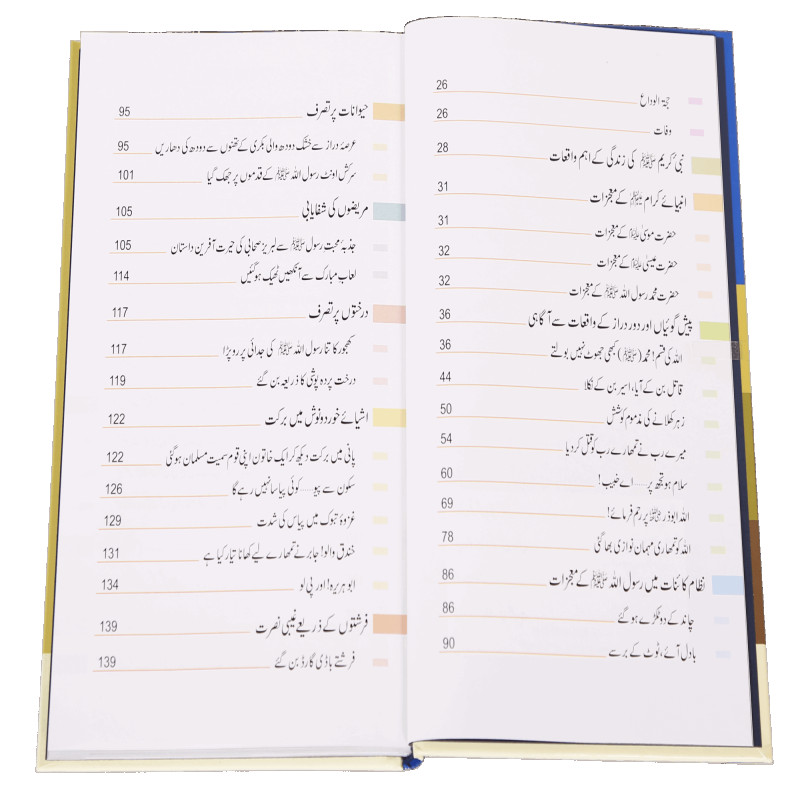 حجۃ الوداع 26
وفات 26
نبی کریم ﷺ کی زندگی کے اہم واقعات 28
انبیائے کرام علیہم السلام کے معجزات 31
حضرت موسیٰ علیہ السلام کے معجزات 31
حضرت عیسیٰ علیہ السلام کے معجزات 32
حضرت محمد رسول اللہ ﷺ کے معجزات 32
پیش گوئیاں اور دور دراز کے واقعات سے آگاہی 36
اللہ کی قسم! محمد (ﷺ) کبھی جھوٹ نہیں بولتے 36
قاتل بن کے آیا، اسیر بن کے نکلا 44
زہر کھلانے کی مذموم کوشش 50
میرے رب نے تمھارے رب کو قتل کر دیا 54
سلام ہو تجھ پر — اے خبیب! 60
اللہ ابوذر رضی اللہ عنہ پر رحم فرمائے! 69
اللہ کو تمھاری مہمان نوازی بھا گئی 78
نظام کائنات میں رسول اللہ ﷺ کے معجزات 86
چاند کے دو ٹکڑے ہو گئے 86
بادل آئے، ٹوٹ کے برسے 90
حیوانات پر تصرف 95
عرصۂ دراز سے خشک دودھ والی بکری کے تھنوں سے دودھ کی دھاریں 95
سرکش اونٹ رسول اللہ ﷺ کے قدموں پر جھک گیا 101
مریضوں کی شفایابی 105
جذبۂ محبت رسول ﷺ سے لبریز صحابی کی حیرت آفرین داستان 105
لعاب مبارک سے آنکھیں ٹھیک ہو گئیں 114
درختوں پر تصرف 117
کھجور کا تنا رسول اللہ ﷺ کی جدائی پر رو پڑا 117
درخت پردہ پوشی کا ذریعہ بن گئے 119
اشیائے خور و نوش میں برکت 122
پانی میں برکت دیکھ کر ایک خاتون اپنی قوم سمیت مسلمان ہو گئی 122
سکون سے پیو — کوئی پیاسا نہیں رہے گا 126
غزوۂ تبوک میں پیاس کی شدت 129
خندق والو! جابر نے تمھارے لیے کھانا تیار کیا ہے 131
ابوہریرہ! اور پی لو 134
فرشتوں کے ذریعے غیبی نصرت 139
فرشتے باڈی گارڈ بن گئے 139